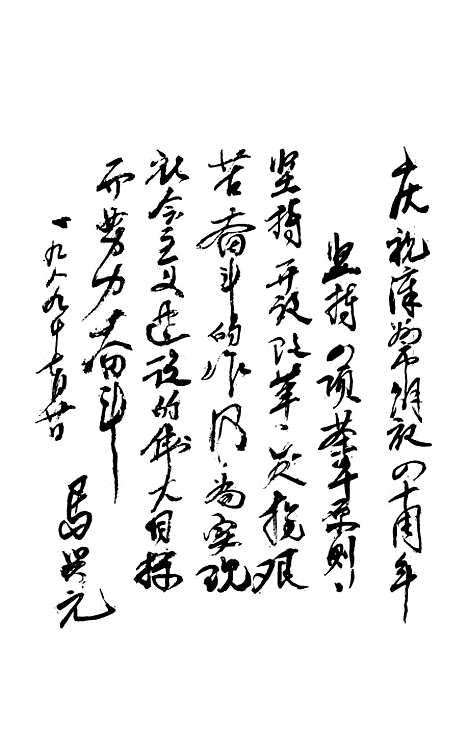 庆祝漳州市解放四十周年
坚持四项基本原则、
坚持开放改革、发扬艰
苦奋斗的作风、为实现
社会主义建设的伟大目标
而努力奋斗
一九八九年十月廿日
马兴元